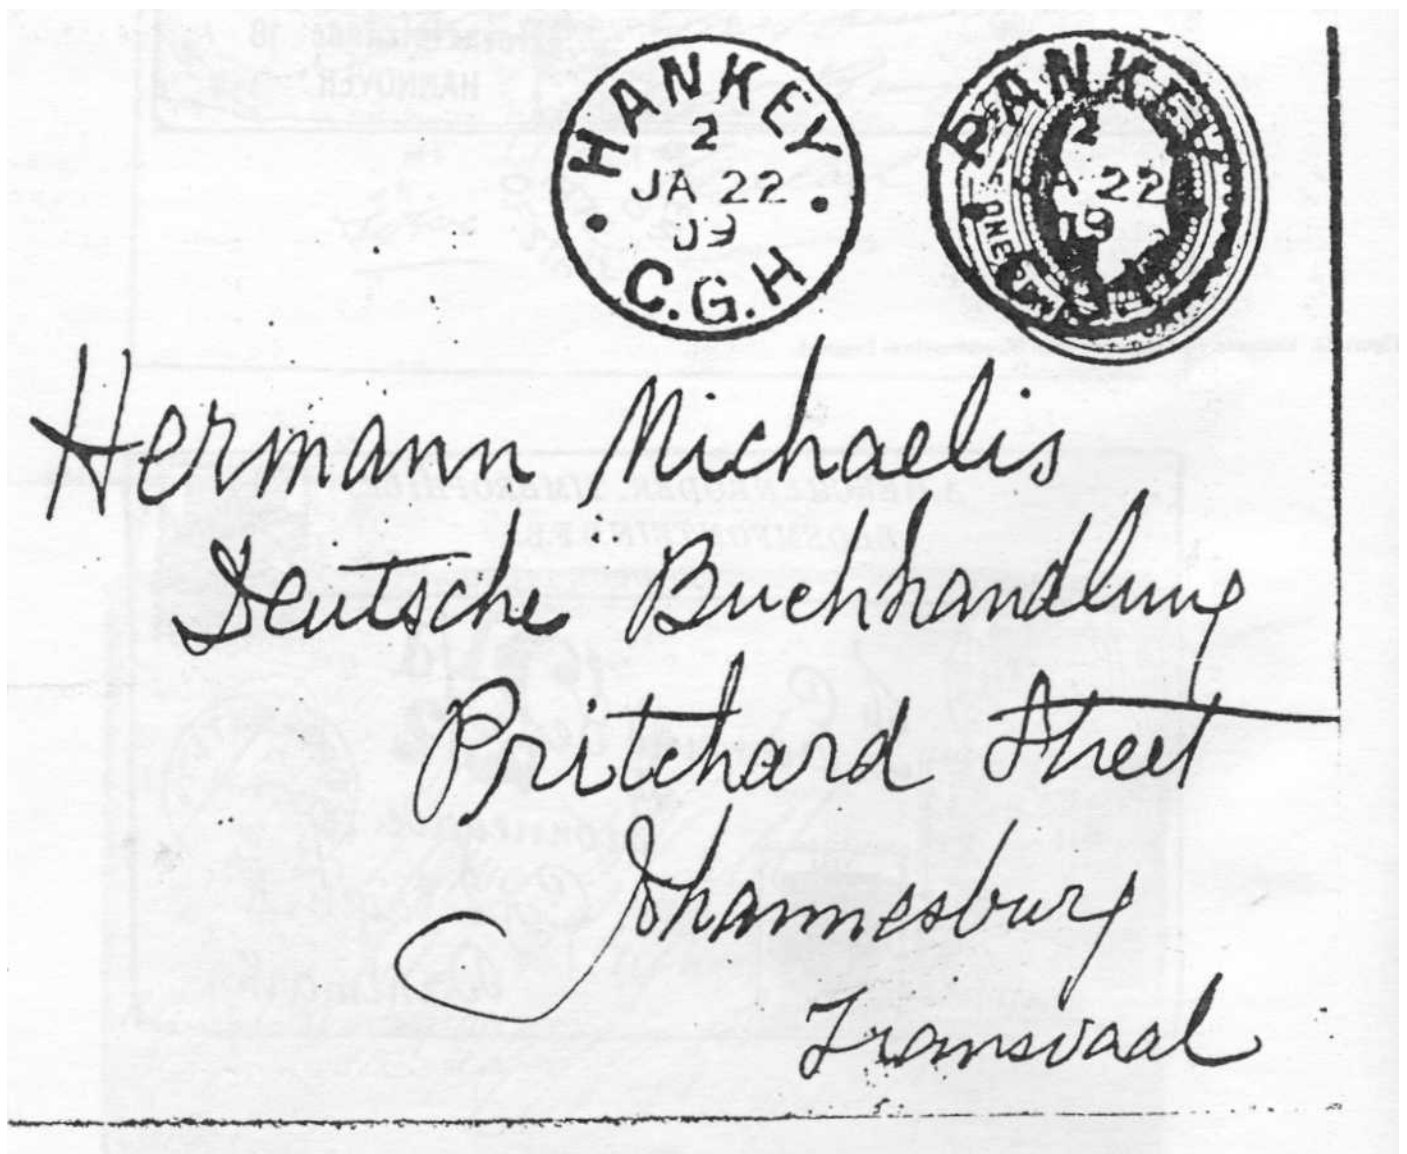 HANKEY
2
JA 22
09
C.G.H
HANKEY
2
JA 22
09
ONE
Hermann Michaelis
Deutsche Buchhandlung
Pritchard Street
Johannesburg
Transvaal